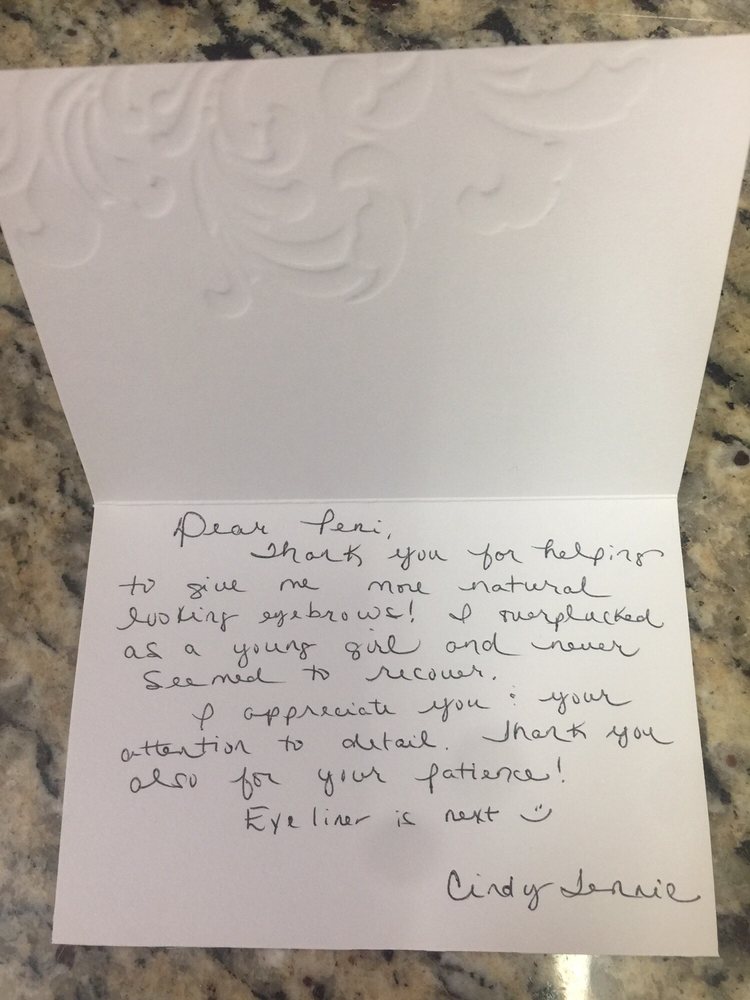 Dear Peni,
Thank you for helping
to give me more natural
looking eyebrows! I overplucked
as a young girl and never
seemed to recover.
I appreciate you & your
attention to detail. Thank you
also for your patience!
Eyeliner is next :)
Cindy